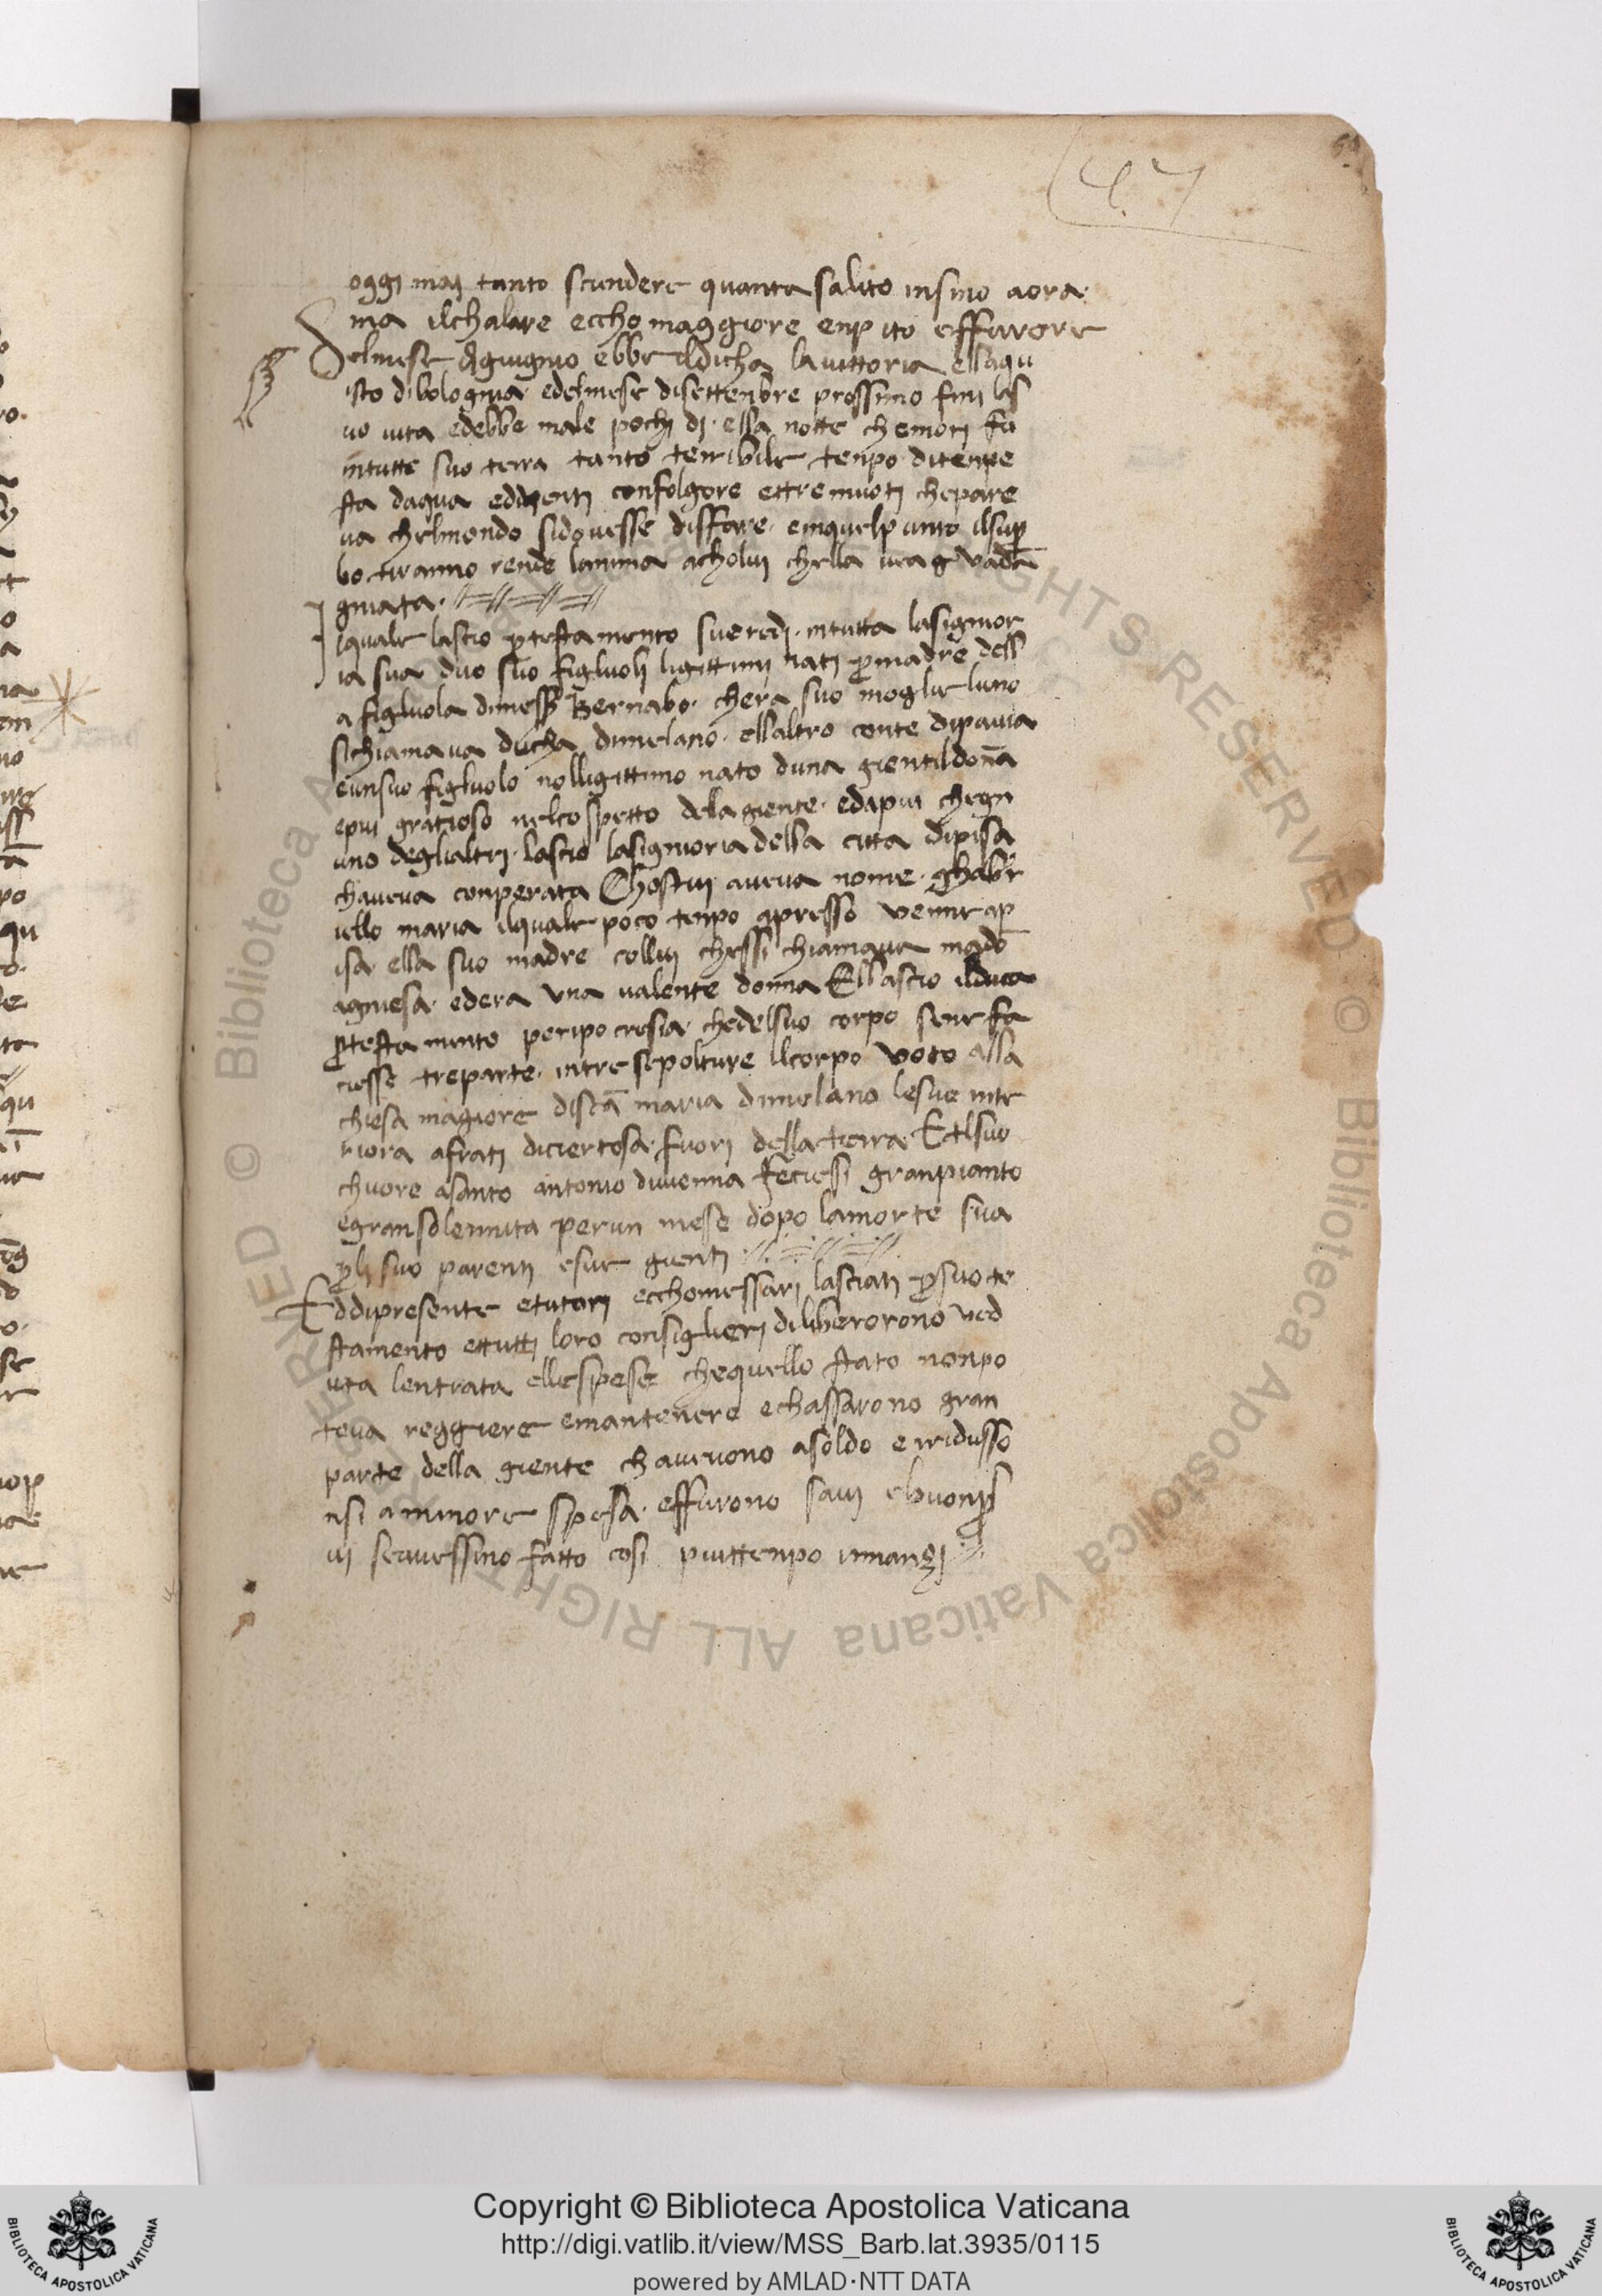 47
oggi mai tanto scendere quanta salito insino aora
ma ilchalare eccho maggiore enpito effurore
Delmese digiugnio ebbe ilducha lauittoria ellaqu
isto dibolognia edelmese disettenbre prossimo fini las
uo uita edebbe male pochi di · essa notte chemori fu
intutte suo terra tanto terribile tenpo ditenpe
sta daqua edduenti confolgore ettremuoti chepare
ua chelmondo sidouesse disffare · einquelpunto ilsup
bo tiranno rende lanima acholui chella
gniata ·
Iquale lascio ptestamento sueredi · intutta lasignior
ia sua duo suo figluoli ligittimi nati pmadre dell
a figluola dimess Bernabo · chera suo moglie luno
sichiamaua ducha dimelano · ellaltro conte dipauia
eunsuo figluolo nolligittimo nato duna gientildoña
epiu gratioso nelcospetto dela giente · edapiu chegn
uno deglialtri · lascio lasignioria della citta dipisa
chaueua conperata Chostui aueua nome · ghabr
iello maria ilquale poco tenpo apresso uenne ap
isa ella suo madre collui chessi chiamaua mado
agniesa · edera una ualente donna Ellascio ilduca
ptestamento peripocresia · chedelsuo corpo sene fa
ciesse treparte · intre sepolture Ilcorpo uoto alla
chiesa magiore discã maria dimelano lesue inte
riora afrati diciertosa · fuori della terra · Etlsuo
chuore asanto antonio diuienna feciesi granpianto
egransolennita perun mese dopo lamorte sua
pli suo parenti esue gienti
Eddipresente etutori ecchomessari lasciati psuote
stamento ettutti loro consiglieri diliberorono ued
uta lentrata ellespese chequello stato nonpo
teua reggiere emantenere echassarono gran
parte della giente chaueuono asoldo erridusso
nsi aminore spesa · effurono saui ebuonps
ui seauessino fatto cosi piuttenpo innanzi
Copyright © Biblioteca Apostolica Vaticana
http://digi.vatlib.it/view/MSS_Barb.lat.3935/0115
powered by AMLAD·NTT DATA